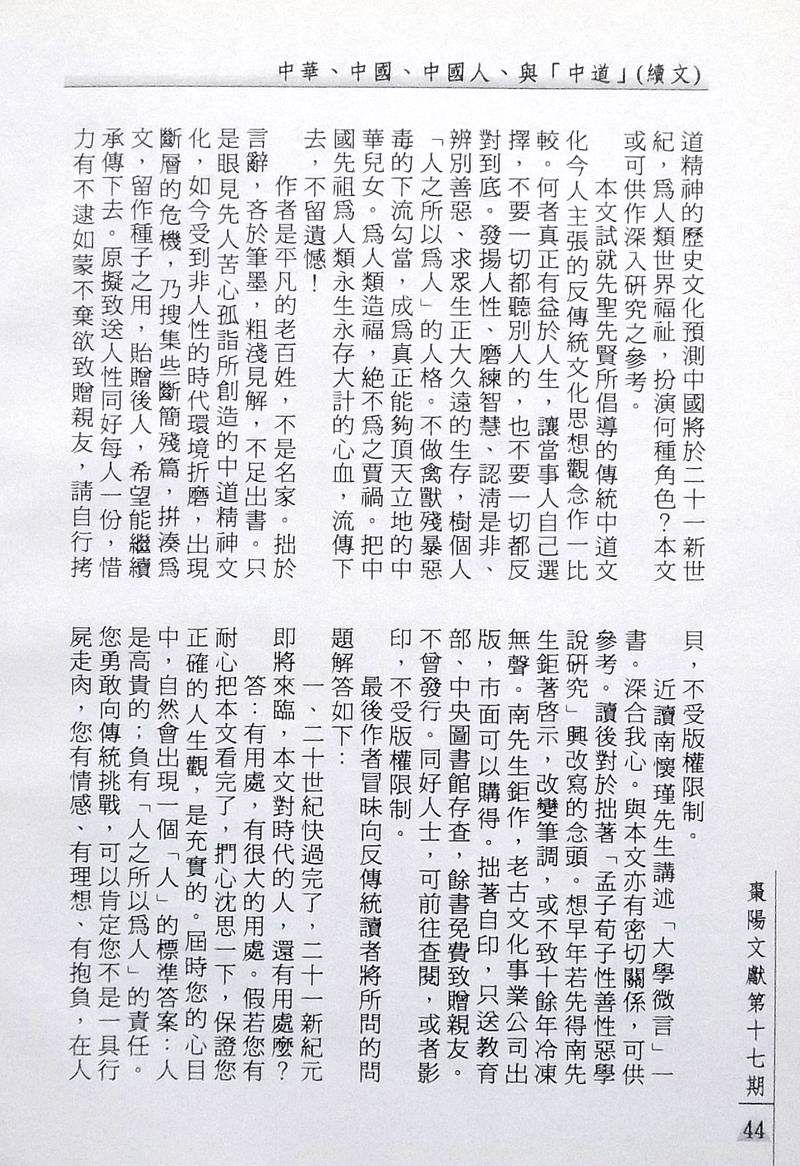 中華、中國、中國人、與「中道」(續文)
道精神的歷史文化預測中國將於二十一新世
紀，爲人類世界福祉，扮演何種角色？本文
或可供作深入研究之參考。
本文試就先聖先賢所倡導的傳統中道文
化今人主張的反傳統文化思想觀念作一比
較。何者真正有益於人生，讓當事人自己選
擇，不要一切都聽別人的，也不要一切都反
對到底。發揚人性、磨練智慧、認清是非、
辨別善惡、求眾生正大久遠的生存，樹個人
「人之所以爲人」的人格。不做禽獸殘暴惡
毒的下流勾當，成爲真正能夠頂天立地的中
華兒女。爲人類造福，絕不爲之賈禍。把中
國先祖爲人類永生永存大計的心血，流傳下
去，不留遺憾！
作者是平凡的老百姓，不是名家。拙於
言辭，吝於筆墨，粗淺見解，不足出書。只
是眼見先人苦心孤詣所創造的中道精神文
化，如今受到非人性的時代環境折磨，出現
斷層的危機，乃搜集些斷簡殘篇，拼湊爲
文，留作種子之用，貽贈後人，希望能繼續
承傳下去。原擬致送人性同好每人一份，惜
力有不逮如蒙不棄欲致贈親友，請自行拷
貝，不受版權限制。
近讀南懷瑾先生講述「大學微言」一
書。深合我心。與本文亦有密切關係，可供
參考。讀後對於拙著「孟子荀子性善性惡學
說研究」興改寫的念頭。想早年若先得南先
生鉅著啓示，改變筆調，或不致十餘年冷凍
無聲。南先生鉅作，老古文化事業公司出
版，市面可以購得。拙著自印，只送教育
部、中央圖書館存查，餘書免費致贈親友。
不曾發行。同好人士，可前往查閱，或者影
印，不受版權限制。
最後作者冒昧向反傳統讀者將所問的問
題解答如下：
一、二十世紀快過完了，二十一新紀元
即將來臨，本文對時代的人，還有用處麼？
答：有用處，有很大的用處。假若您有
耐心把本文看完了，捫心沈思一下，保證您
正確的人生觀，是充實的。屆時您的心目
中，自然會出現一個「人」的標準答案：人
是高貴的；負有「人之所以爲人」的責任。
您勇敢向傳統挑戰，可以肯定您不是一具行
屍走肉，您有情感、有理想、有抱負，在人
棗陽文獻第十七期
44